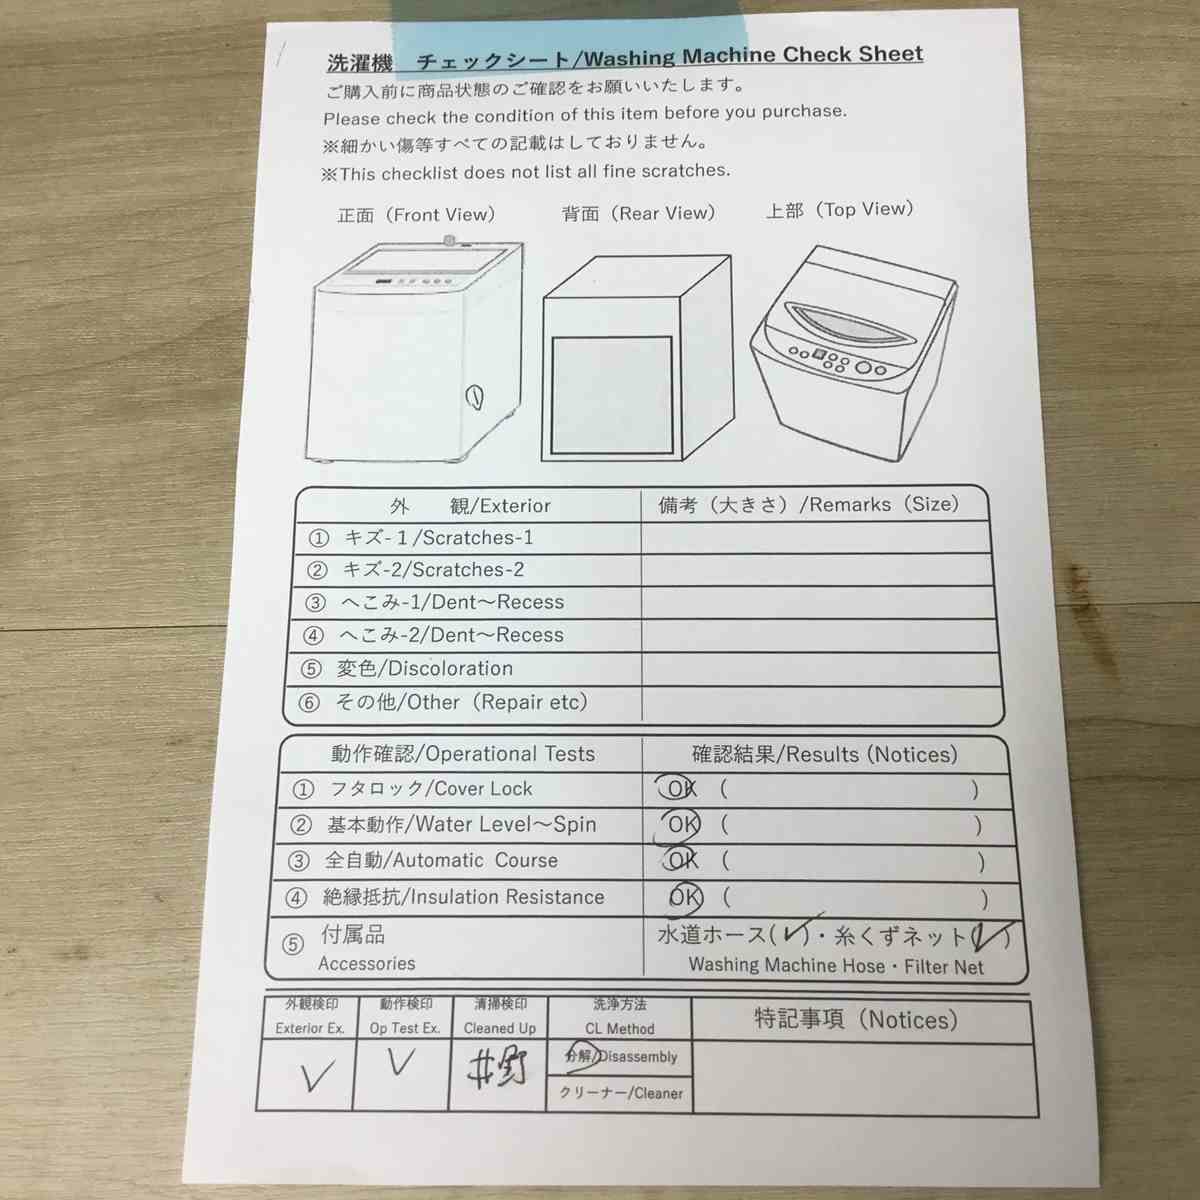 洗濯機　チェックシート/Washing Machine Check Sheet
ご購入前に商品状態のご確認をお願いいたします。
Please check the condition of this item before you purchase.
※細かい傷等すべての記載はしておりません。
※This checklist does not list all fine scratches.
正面（Front View） 背面（Rear View） 上部（Top View）
外　　観/Exterior 備考（大きさ）/Remarks（Size）
① キズ-１/Scratches-1
② キズ-2/Scratches-2
③ へこみ-1/Dent～Recess
④ へこみ-2/Dent～Recess
⑤ 変色/Discoloration
⑥ その他/Other（Repair etc）
動作確認/Operational Tests 確認結果/Results (Notices)
① フタロック/Cover Lock OK （ ）
② 基本動作/Water Level～Spin OK （ ）
③ 全自動/Automatic Course OK （ ）
④ 絶縁抵抗/Insulation Resistance OK （ ）
⑤ 付属品 水道ホース(✓)・糸くずネット(✓)
Accessories Washing Machine Hose・Filter Net
外観検印 動作検印 清掃検印 洗浄方法 特記事項（Notices）
Exterior Ex. Op Test Ex. Cleaned Up CL Method
✓ ✓ 井野 分解/Disassembly
クリーナー/Cleaner